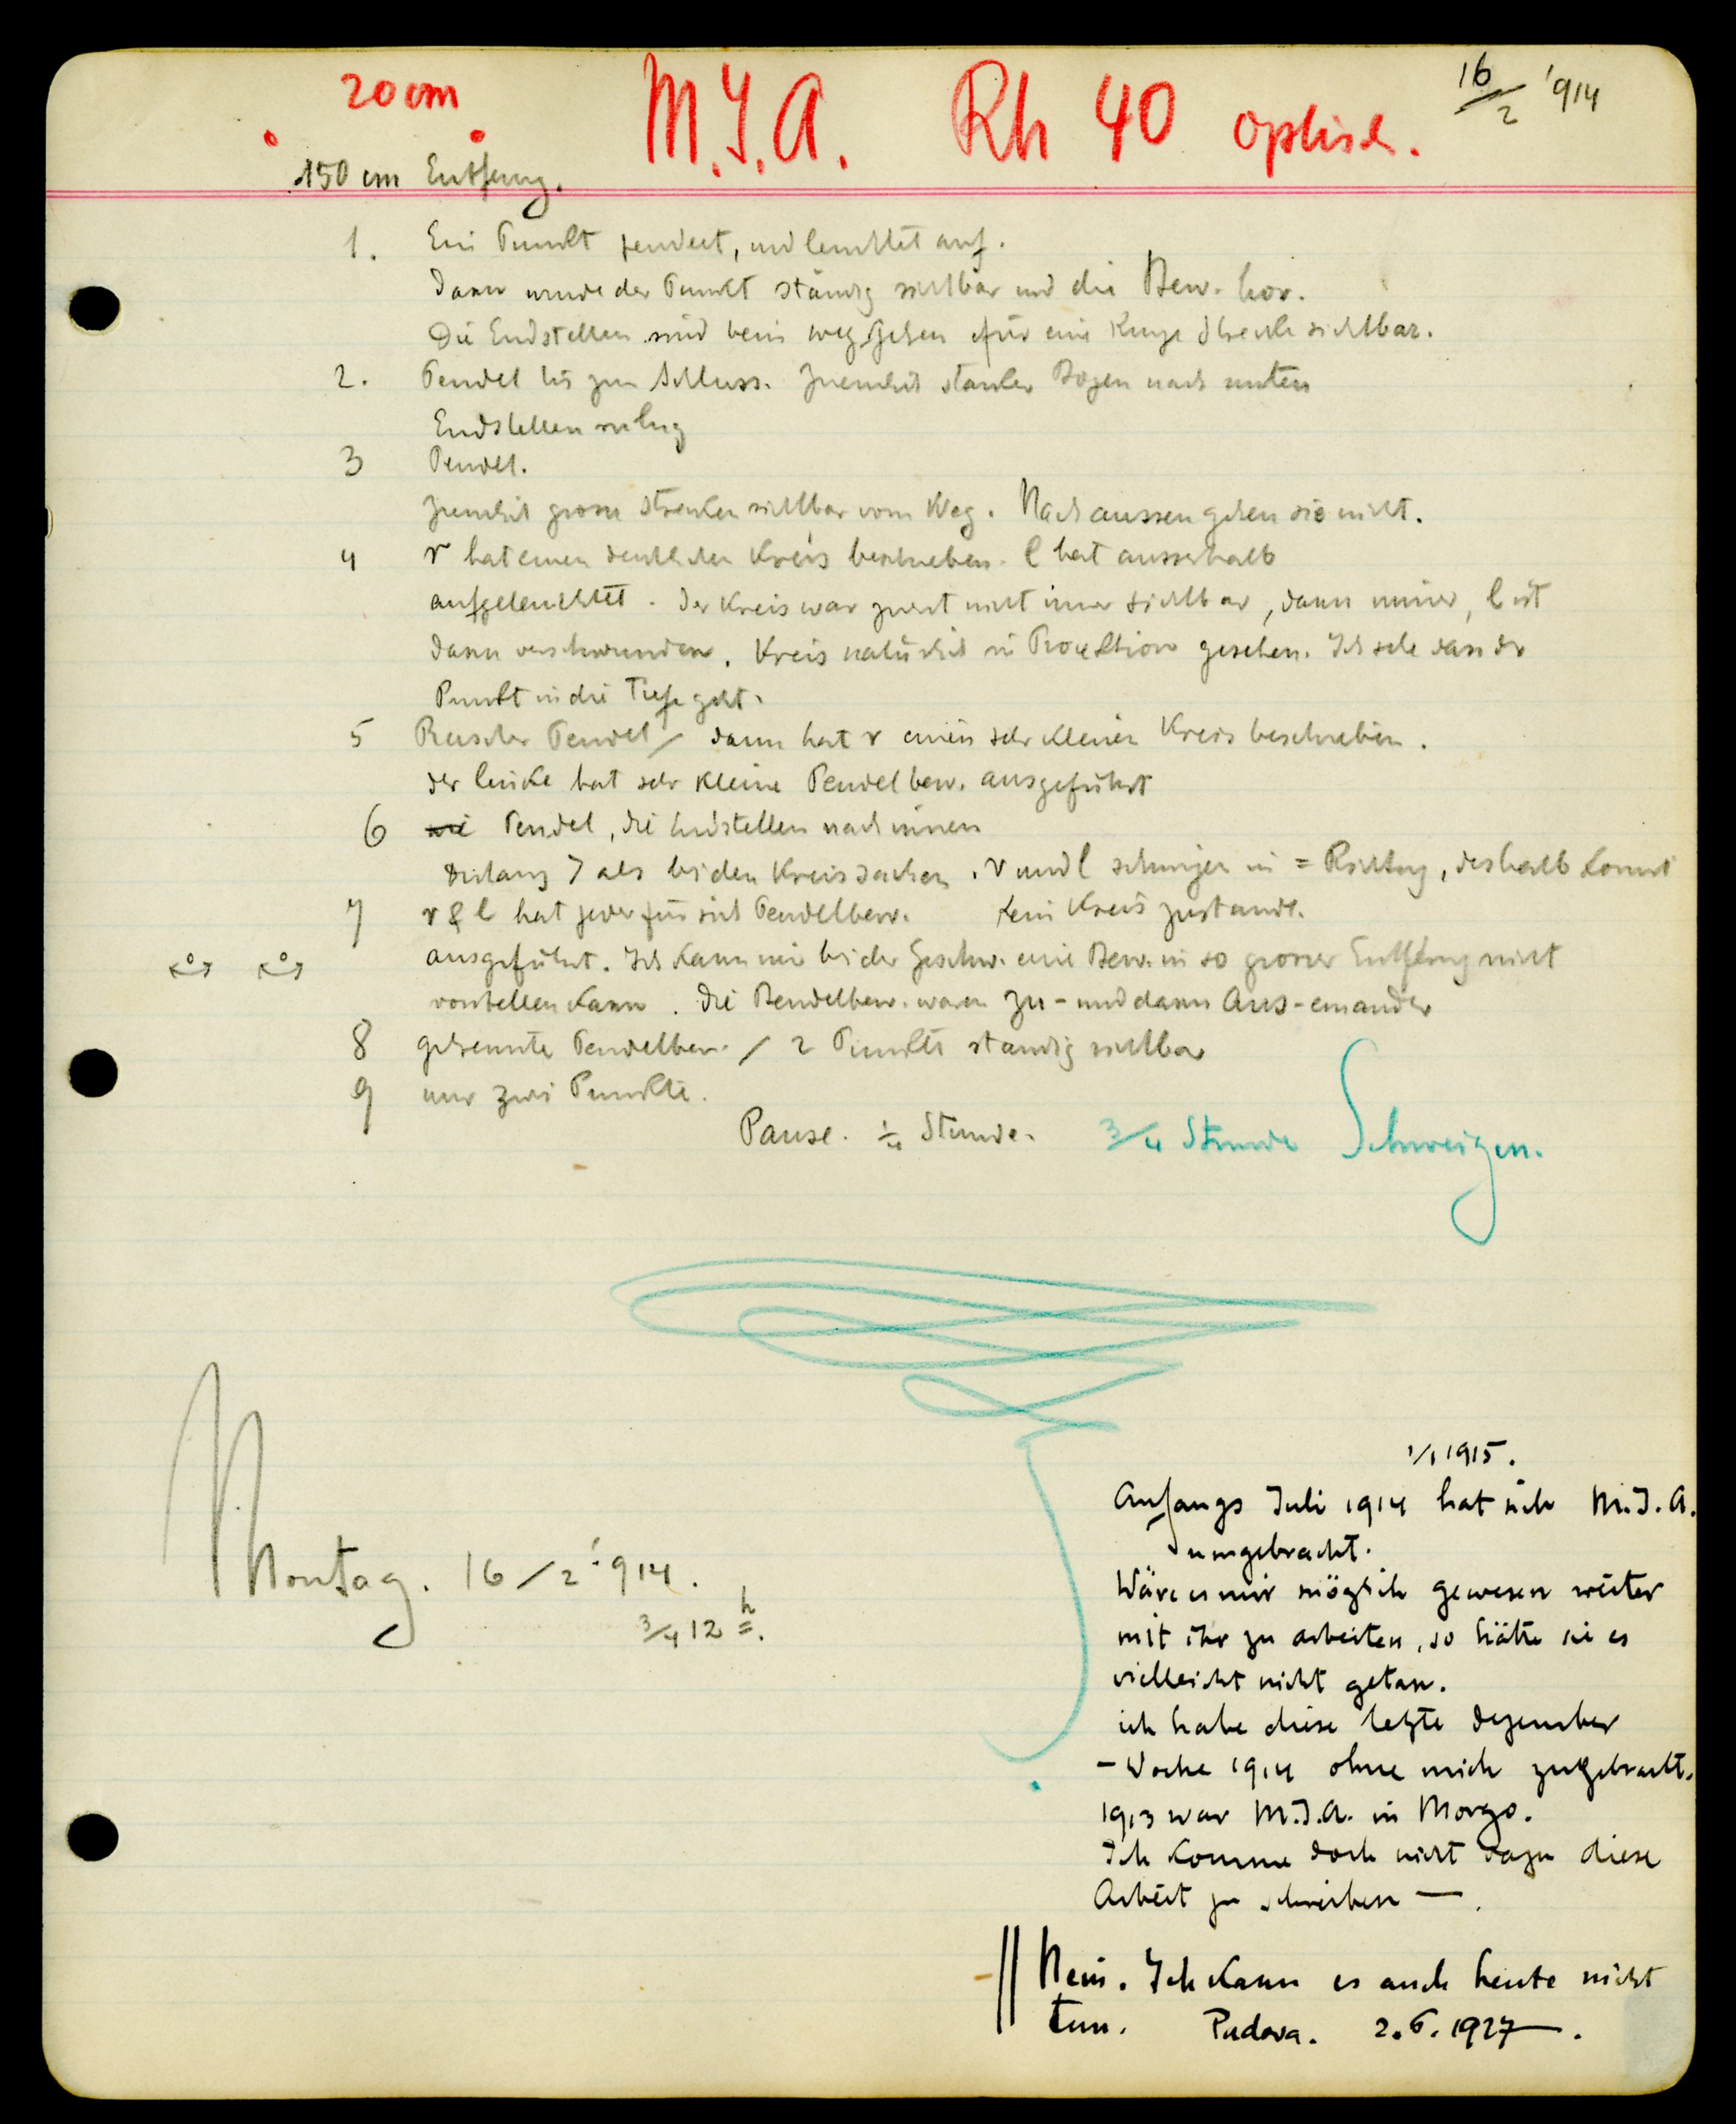 20 cm M. J. A. Rh 40 optisch. 16/2 '914
150 cm Entferng.
1. Ein Punkt pendelt, und leuchtet auf.
Dann wurde der Punkt ständig sichtbar und die Bew. hor.
Die Endstellen sind beim weggehen für eine kurze Strecke sichtbar.
2. Pendel bis zum Schluss. Ziemlich starker Bogen nach unten
Endstellen ruhig
3 Pendel.
Ziemlich grosse Strecken sichtbar vom Weg. Nach aussen gehen sie nicht.
4 r hat einen deutlichen Kreis beschrieben. l hat ausserhalb
aufgeleuchtet. Der Kreis war zuerst nicht immer sichtbar, dann immer, l ist
dann verschwunden. Kreis natürlich in Projektion gesehen. Ich sehe dass der
Punkt in die Tiefe geht.
5 Rascher Pendel / dann hat r einen sehr kleinen Kreis beschrieben.
der linke hat sehr kleine Pendelbew. ausgeführt
6 Pendel, die Endstellen nach innen
Distanz > als bei den Kreissachen. r und l schwingen in = Richtng, deshalb kommt
7 r & l hat jeder für sich Pendelbew. kein Kreis zustande.
ausgeführt. Ich kann mir bei der Geschw. eine Bew. in so grosser Entferng nicht
vorstellen kann. Die Pendelbew. waren zu- und dann Aus-einander
8 getrennte Pendelbew. / 2 Punkte ständig sichtbar
9 nur zwei Punkte.
Pause. ¼ Stunde. ¾ Stunde Schweigen.
Montag. 16/2 '914.
¾ 12 h.
1/1 1915.
Anfangs Juli 1914 hat sich M. J. A.
umgebracht.
Wäre es mir möglich gewesen weiter
mit ihr zu arbeiten, so hätte sie es
vielleicht nicht getan.
ich habe diese letzte Dezember
- Woche 1914 ohne mich zugebracht.
1913 war M. J. A. in
Ich komme doch nicht dazu diese
Arbeit zu schreiben —.
Nein. Ich kann es auch heute nicht
tun. Padova. 2.6.1927—.